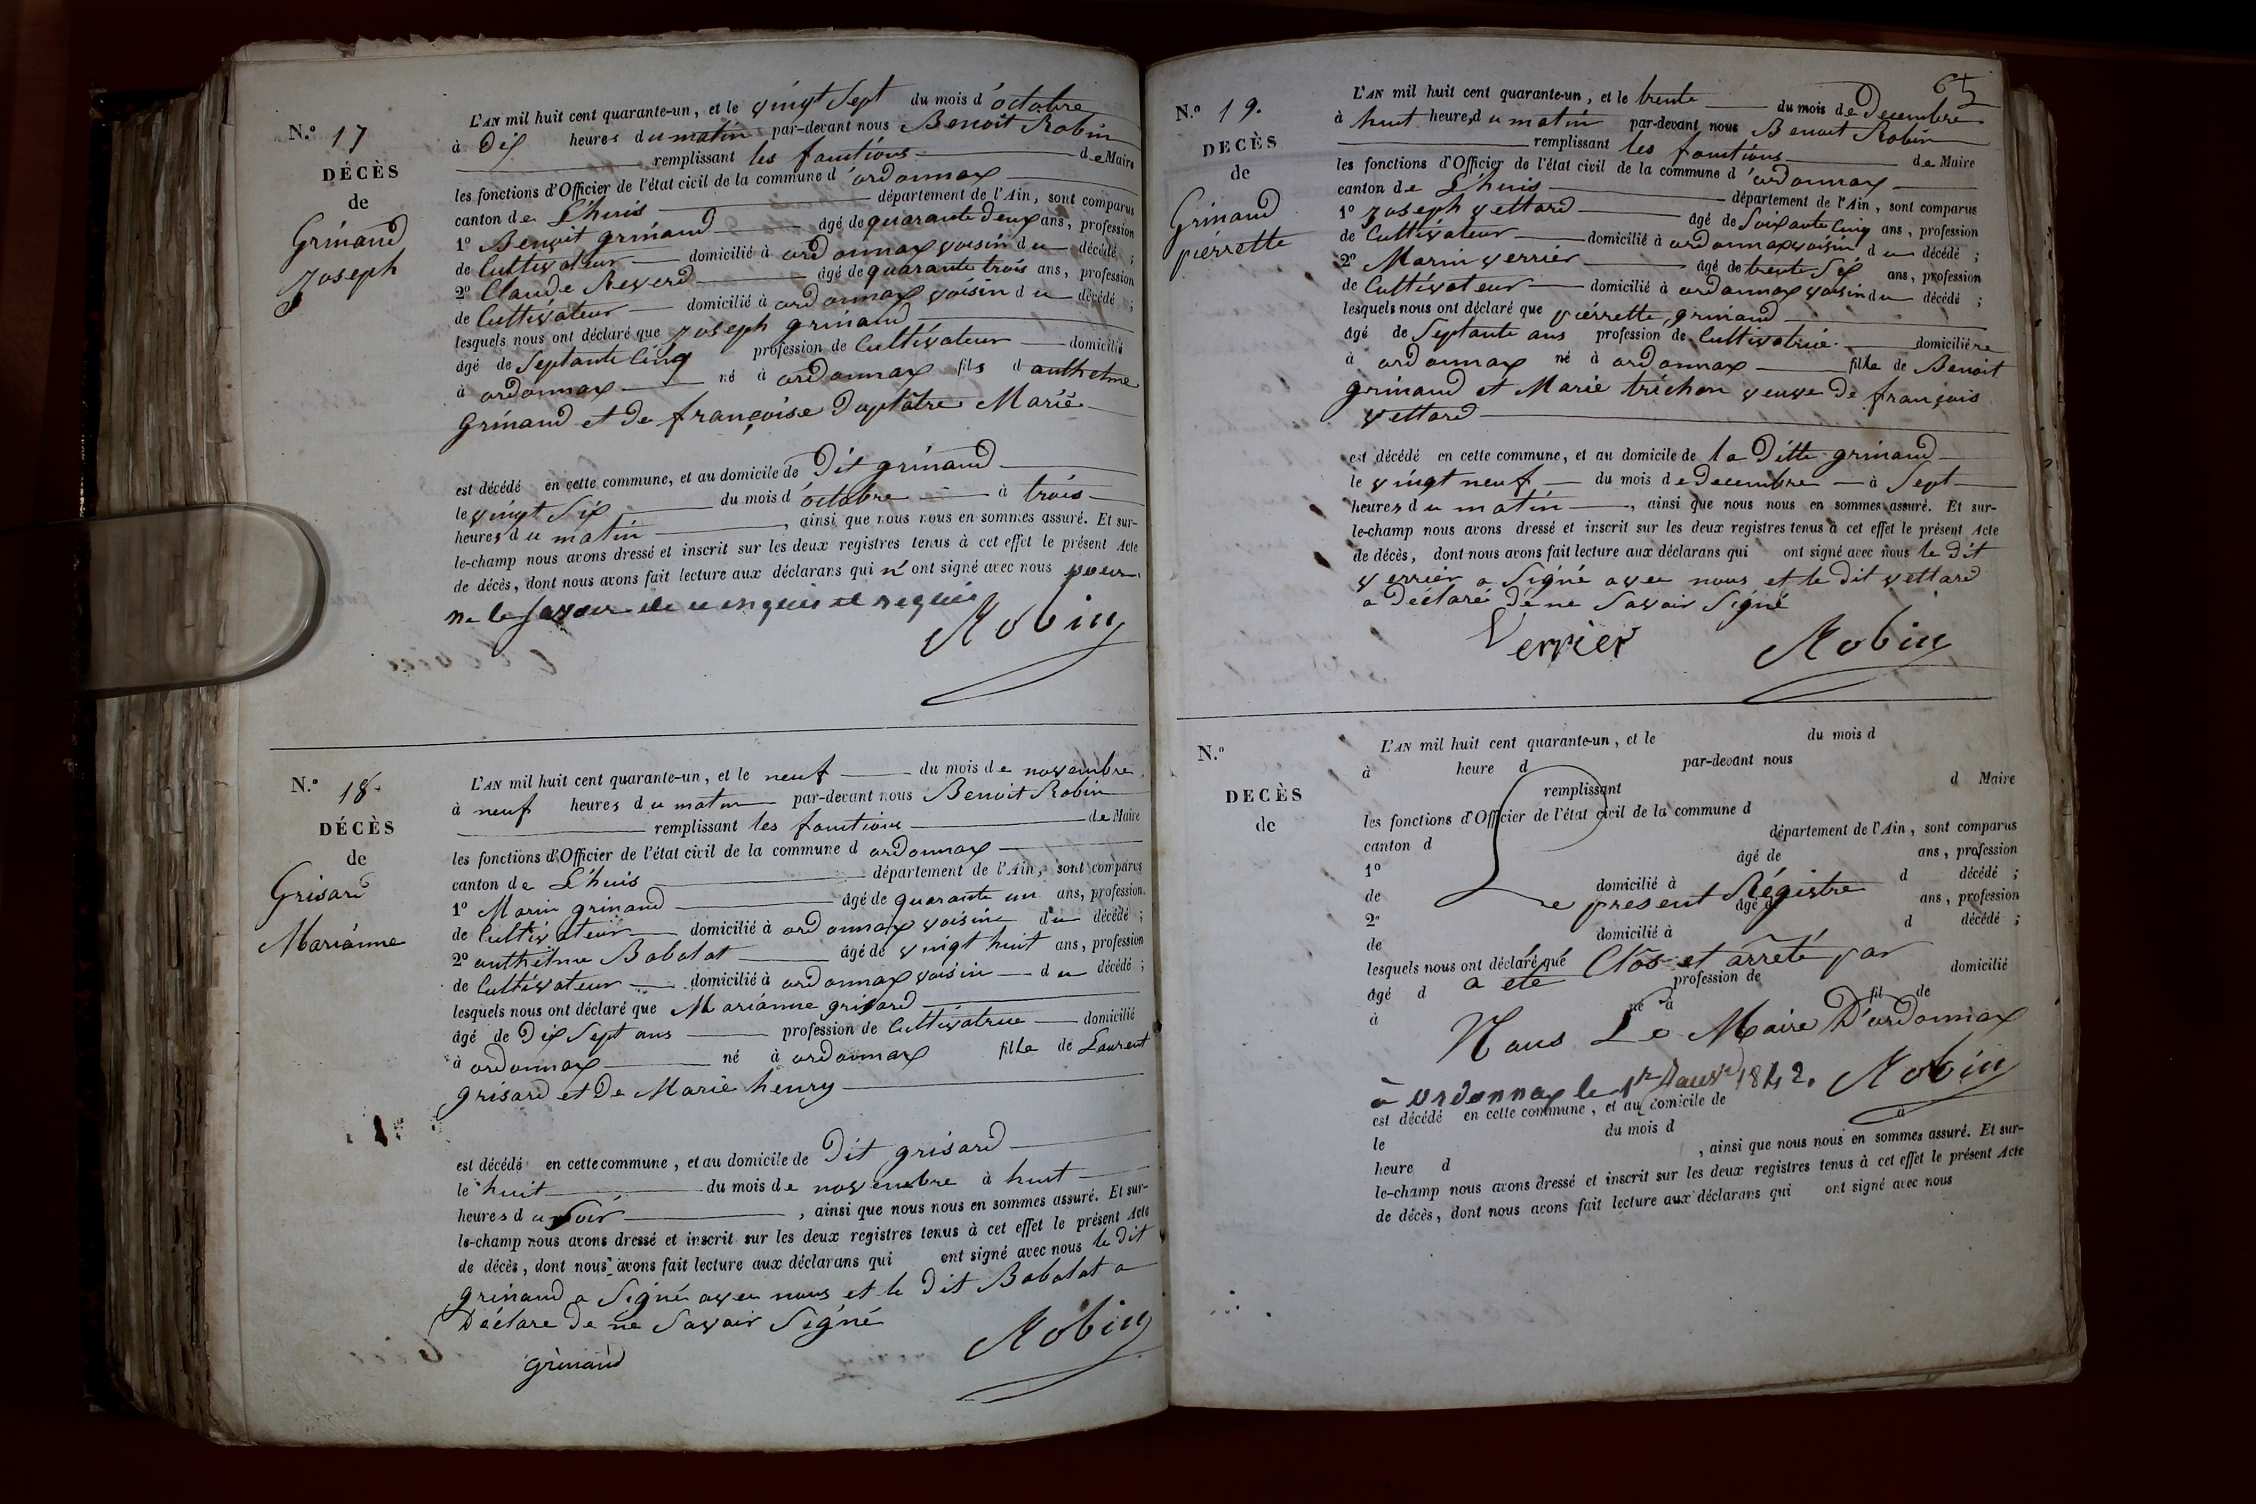 N.o 17
DÉCÈS
de
Grinand
Joseph
L'AN mil huit cent quarante-un, et le vingt Sept du mois d'octobre
à Dix heures du matin par-devant nous Benoit Robin
remplissant les fonctions de Maire
les fonctions d'Officier de l'état civil de la commune d'ordonnax
canton de L'huis département de l'Ain, sont comparus
1o Benoit grinand âgé de quarante deux ans, profession
de Cultivateur domicilié à ordonnax voisin du décédé ;
2o Claude Reverd âgé de quarante trois ans, profession
de Cultivateur domicilié à ordonnax voisin du décédé ;
lesquels nous ont déclaré que Joseph grinand
âgé de Septante Cinq profession de Cultivateur domicilié
à ordonnax né à ordonnax fils d anthelme
Grinand et de françoise Duplâtre Marié
est décédé en cette commune, et au domicile de Dit grinand
le vingt Six du mois d'octobre à trois
heures du matin, ainsi que nous nous en sommes assuré. Et sur-
le-champ nous avons dressé et inscrit sur les deux registres tenus à cet effet le présent Acte
de décès, dont nous avons fait lecture aux déclarans qui n'ont signé avec nous pour
ne le Savoir de ce enquis et requis
Robin
N.o 18.
DÉCÈS
de
Grisard
Marianne
L'AN mil huit cent quarante-un, et le neuf du mois de novembre
à neuf heures du matin par-devant nous Benoit Robin
remplissant les fonctions de Maire
les fonctions d'Officier de l'état civil de la commune d ordonnax
canton de L'huis département de l'Ain, sont comparus
1o Marin grinand âgé de quarante un ans, profession
de Cultivateur domicilié à ordonnax voisin du décédé ;
2o anthelme Babolat âgé de vingt huit ans, profession
de Cultivateur domicilié à ordonnax voisin du décédé ;
lesquels nous ont déclaré que Marianne grisard
âgé de Dix Sept ans profession de Cultivatrice domicilié
à ordonnax né à ordonnax fille de Laurent
grisard et De Marie henry
est décédé en cette commune, et au domicile de Dit grisard
le huit du mois de novembre à huit
heures du Soir, ainsi que nous nous en sommes assuré. Et sur-
le-champ nous avons dressé et inscrit sur les deux registres tenus à cet effet le présent Acte
de décès, dont nous avons fait lecture aux déclarans qui ont signé avec nous le dit
grinand a Signé avec nous et le Dit Babolat a
Déclare De ne Savoir Signé
grinand
Robin
65
N.o 19.
DECÈS
de
Grinand
pierrette
L'AN mil huit cent quarante-un, et le trente du mois de Decembre
à huit heures du matin par-devant nous Benoit Robin
remplissant les fonctions de Maire
les fonctions d'Officier de l'état civil de la commune d'ordonnax
canton de L'huis département de l'Ain, sont comparus
1o Joseph vettard âgé de Soixante Cinq ans, profession
de Cultivateur domicilié à ordonnax voisin du décédé ;
2o Marin verrier âgé de trente Six ans, profession
de Cultivateur domicilié à ordonnax voisin du décédé ;
lesquels nous ont déclaré que pierrette grinand
âgé de Septante ans profession de Cultivatrice domicilière
à ordonnax né à ordonnax fille de Benoit
grinand et Marie trichon veuve De françois
vettard
est décédé en cette commune, et au domicile de la Ditte grinand
le vingt neuf du mois de Decembre à Sept
heures du matin, ainsi que nous nous en sommes assuré. Et sur-
le-champ nous avons dressé et inscrit sur les deux registres tenus à cet effet le présent Acte
de décès, dont nous avons fait lecture aux déclarans qui ont signé avec nous le dit
verrier a Signé avec nous et le dit vettard
a Déclaré de ne Savoir Signé
Verrier Robin
N.o
DECÈS
de
L'AN mil huit cent quarante-un, et le du mois d
à heure d par-devant nous
remplissant d Maire
les fonctions d'Officier de l'état civil de la commune d
canton d département de l'Ain, sont comparus
1o âgé de ans, profession
de domicilié à d décédé ;
Le present Régistre
2o âgé de ans, profession
de domicilié à d décédé ;
lesquels nous ont déclaré que
a été Clos et arrêté par
âgé d profession de domicilié
à né à fil de
Nous Le Maire D'ordonnax
à ordonnax le 1r Janvr 1842. Robin
est décédé en cette commune, et au domicile de
le du mois d à
heure d, ainsi que nous nous en sommes assuré. Et sur-
le-champ nous avons dressé et inscrit sur les deux registres tenus à cet effet le présent Acte
de décès, dont nous avons fait lecture aux déclarans qui ont signé avec nous